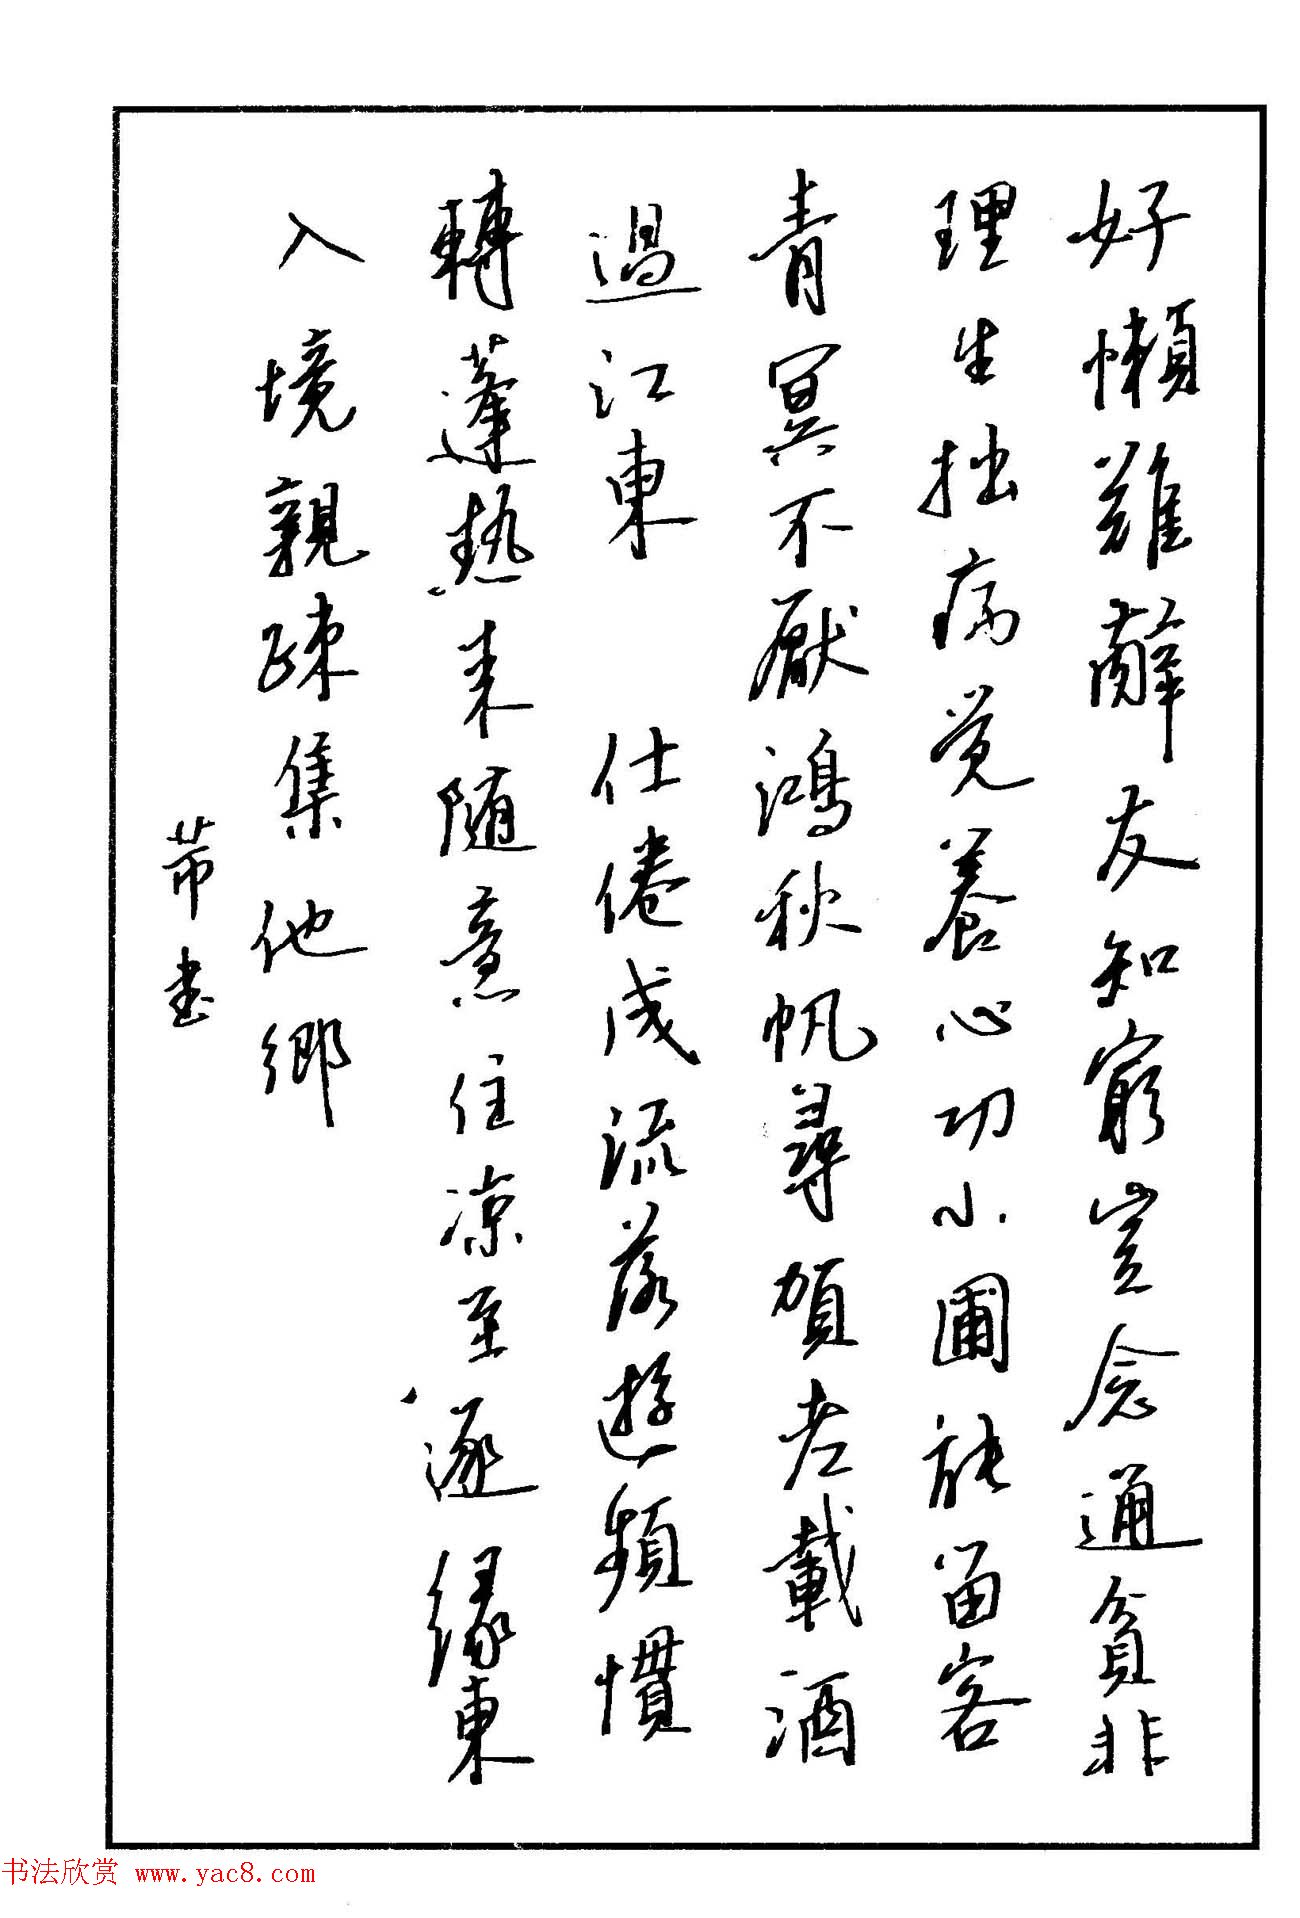 好懶難辭友知窮豈念通貧非
理生拙病觉養心功小圃能留客
青冥不厭鴻秋帆尋賀老載酒
過江東 仕倦成流落遊頻慣
轉蓬熱来随意住凉至逐緣東
入境親疎集他鄉
芾书
书法欣赏 www.yac8.com